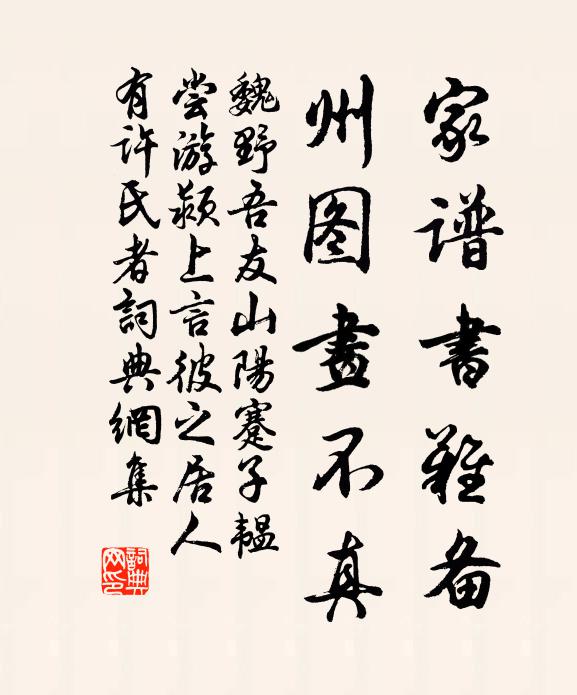 家谱書難备
州图畫不真
魏野吾友山陽蹇子韫
尝游颍上言彼之居人
有许氏者詞典網集
詞典网印